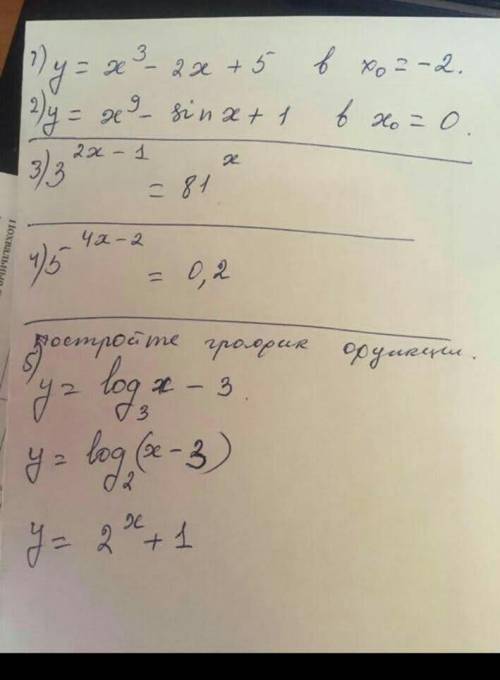 1) y = x³ - 2x + 5 в x₀ = -2.
2) y = x⁹ - sin x + 1 в x₀ = 0.
3) 3^(2x - 1) = 81^x
4) 5^(4x - 2) = 0,2
5) постройте график функции.
y = log₃ x - 3
y = log₂ (x - 3)
y = 2^x + 1